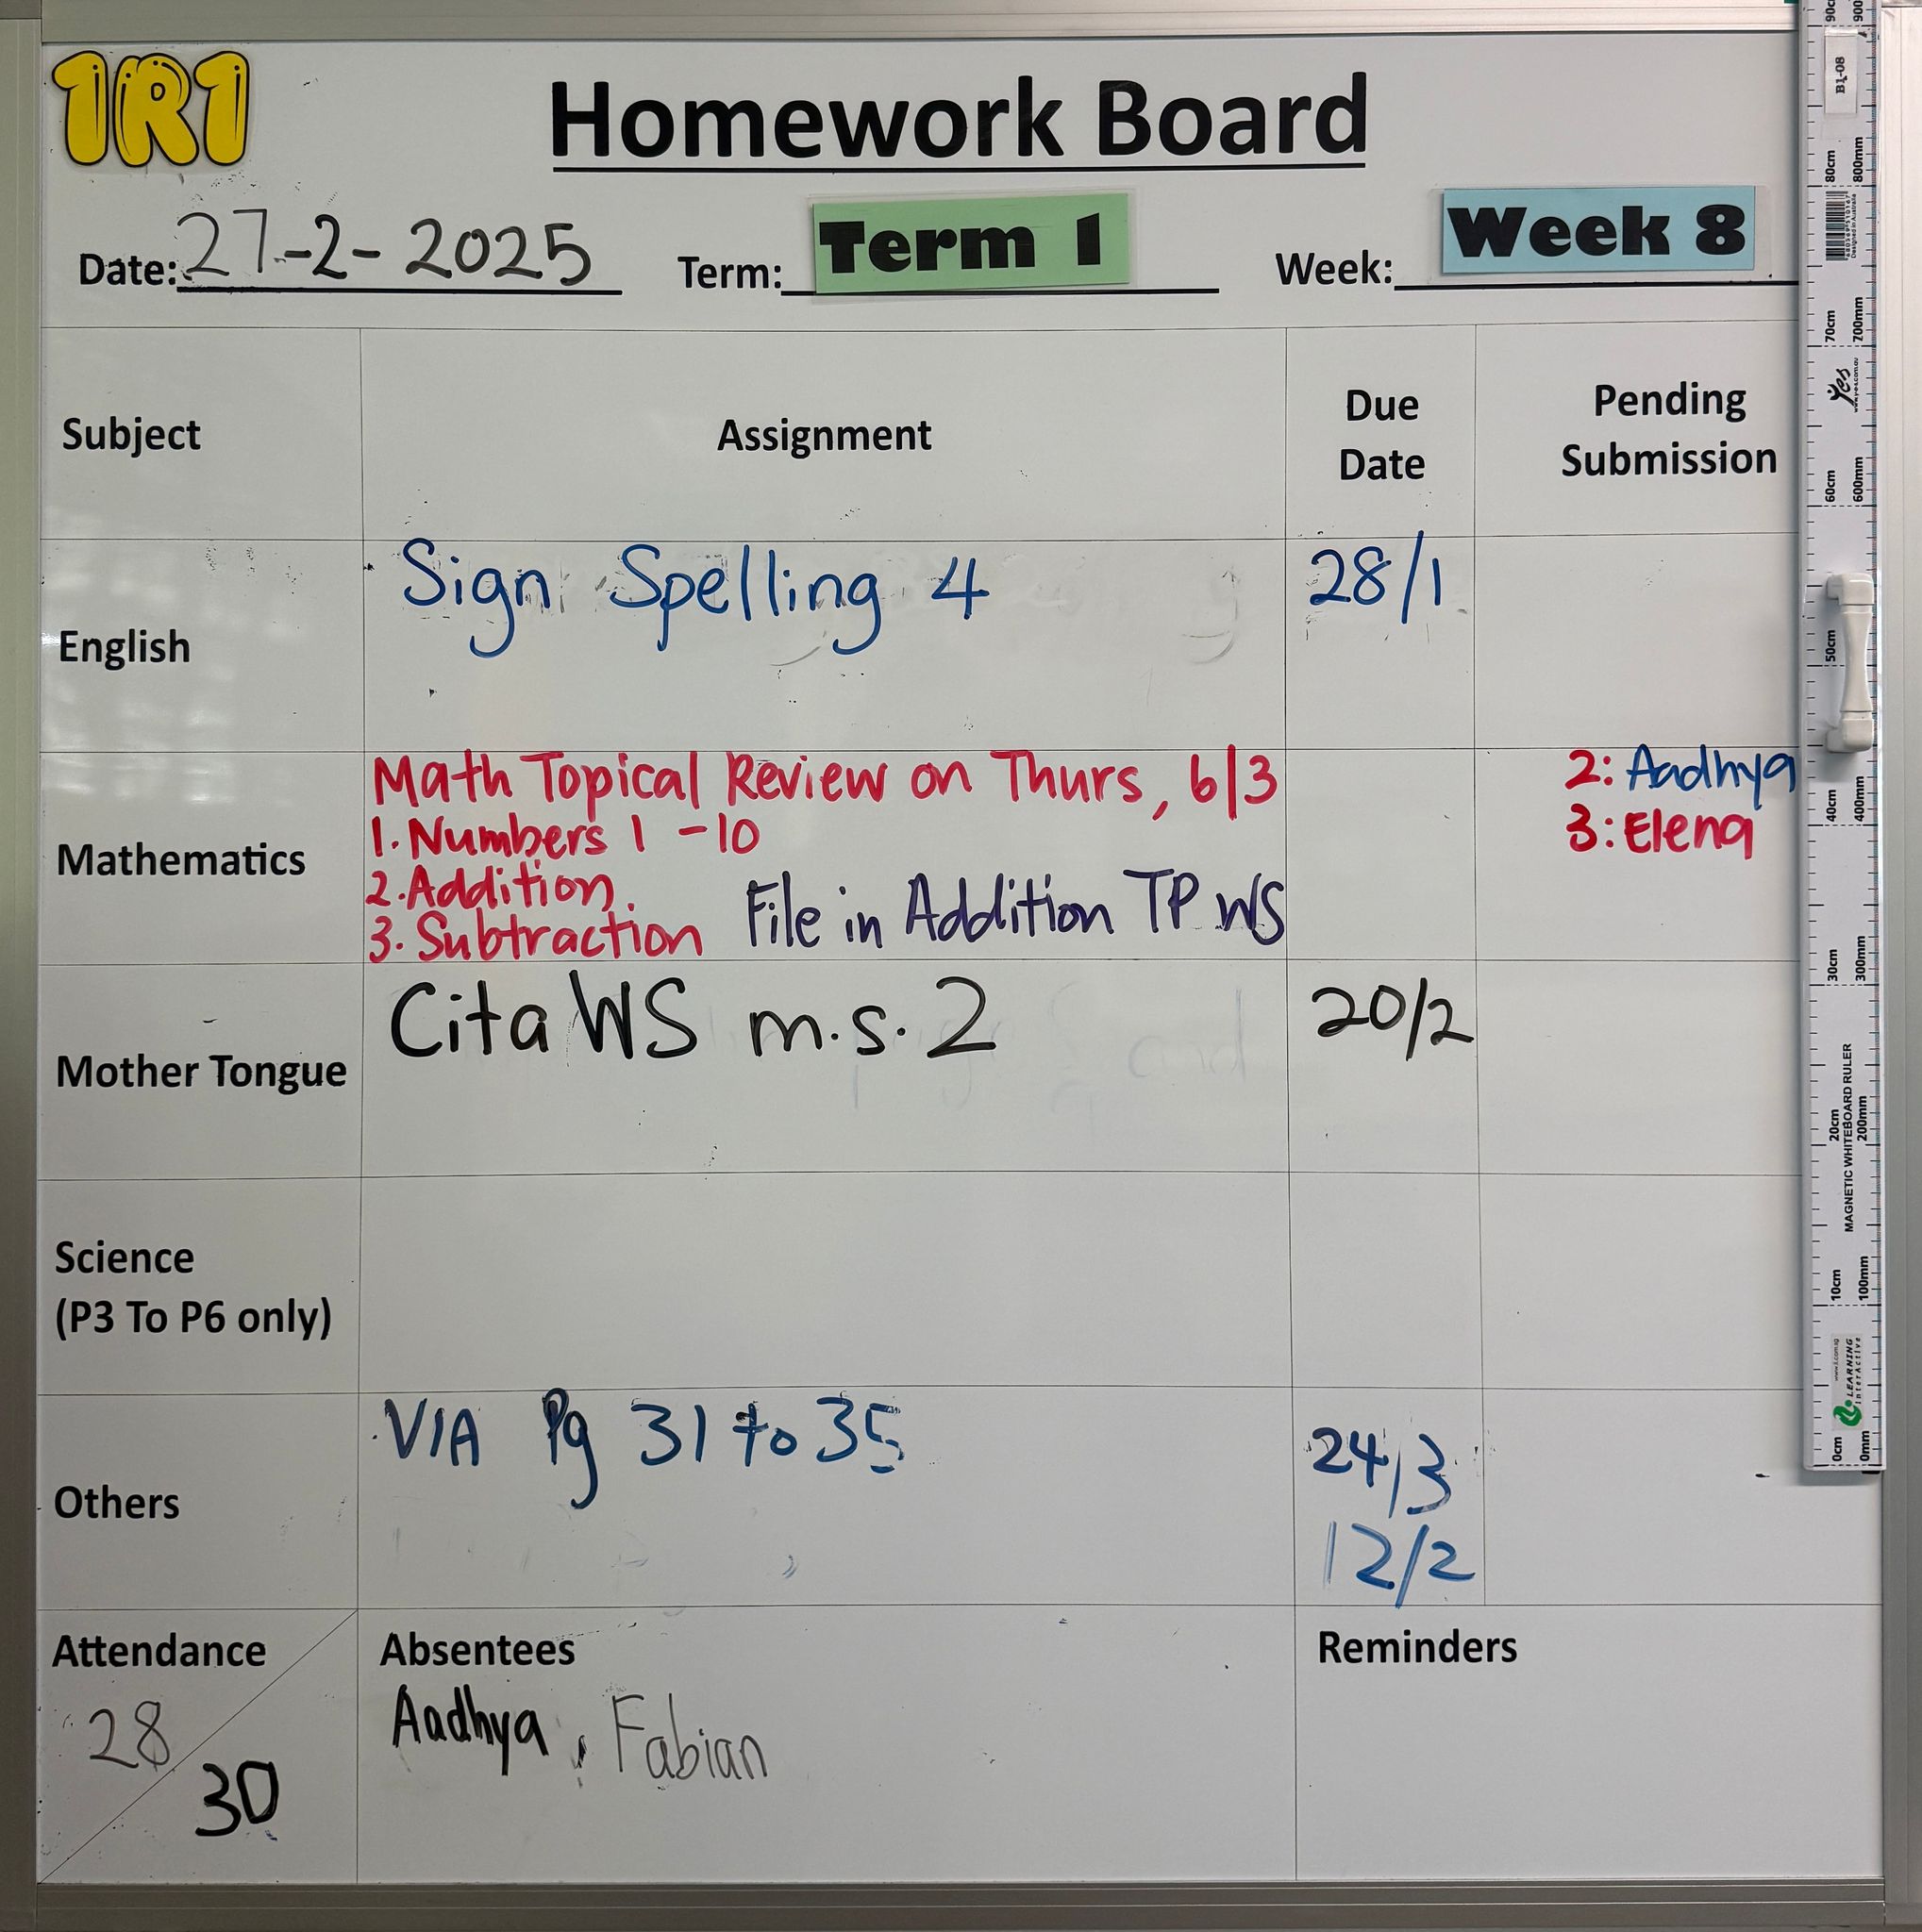 1R1
Homework Board
Date: 27-2-2025 Term: Term 1 Week: Week 8
Subject Assignment Due Date Pending Submission
English Sign Spelling 4 28/1
Mathematics
Math Topical Review on Thurs, 6/3
1. Numbers 1 - 10
2. Addition
3. Subtraction File in Addition TP WS
2: Aadhya
3: Elena
Mother Tongue Cita WS m.s. 2 20/2
Science
(P3 To P6 only)
Others VIA Pg 31 to 35 24/3
12/2
Attendance 28 30
Absentees
Aadhya, Fabian
Reminders
B1-08
90cm 900
80cm 800mm
70cm 700mm
60cm 600mm
50cm
40cm 400mm
30cm 300mm
20cm 200mm
10cm 100mm
0cm 0mm
Yes
MAGNETIC WHITEBOARD RULER
LEARNING
InterActive